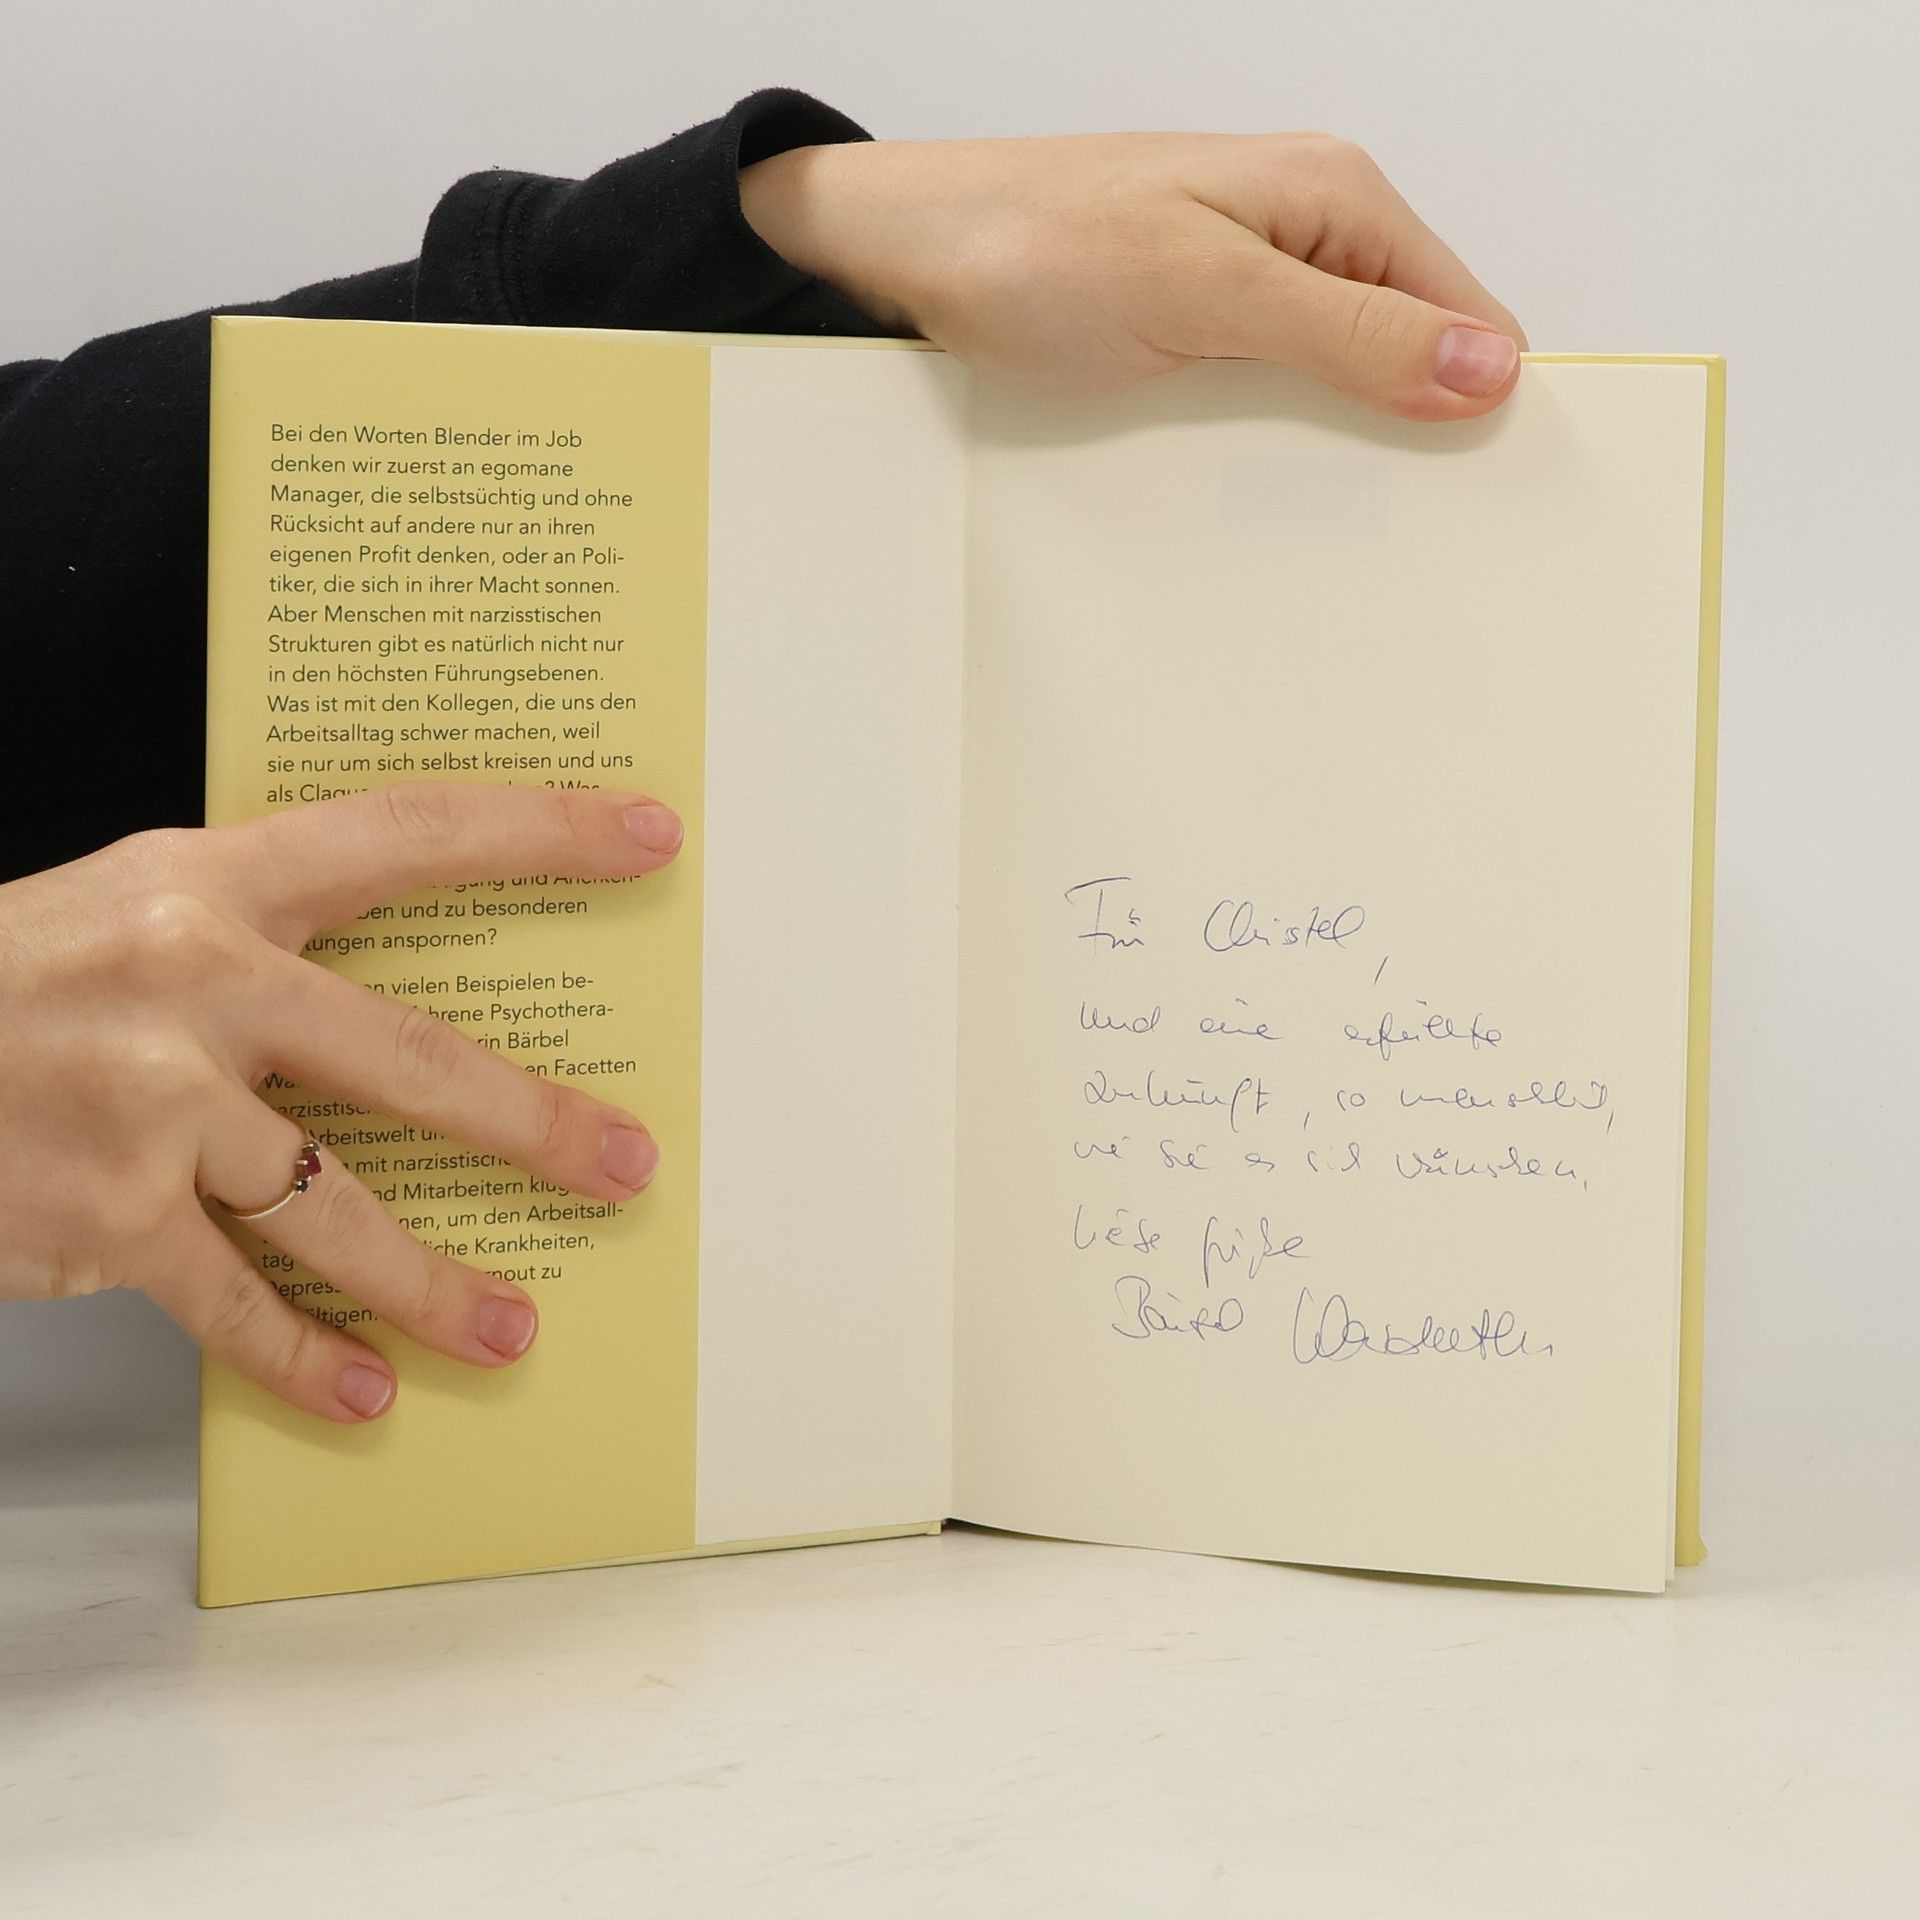 Bei den Worten Blender im Job
denken wir zuerst an egomane
Manager, die selbstsüchtig und ohne
Rücksicht auf andere nur an ihren
eigenen Profit denken, oder an Poli-
tiker, die sich in ihrer Macht sonnen.
Aber Menschen mit narzisstischen
Strukturen gibt es natürlich nicht nur
in den höchsten Führungsebenen.
Was ist mit den Kollegen, die uns den
Arbeitsalltag schwer machen, weil
sie nur um sich selbst kreisen und uns
als
und
und zu besonderen
anspornen?
vielen Beispielen be-
Psychothera-
Bärbel
Facetten
mit
Mitarbeitern
um den Arbeitsall-
tag
Krankheiten,
zu
Für Christel,
und eine erfüllte
Zukunft, so
wie Sie es sich wünschen,
liebe Grüße
Bärbel Wardetzki